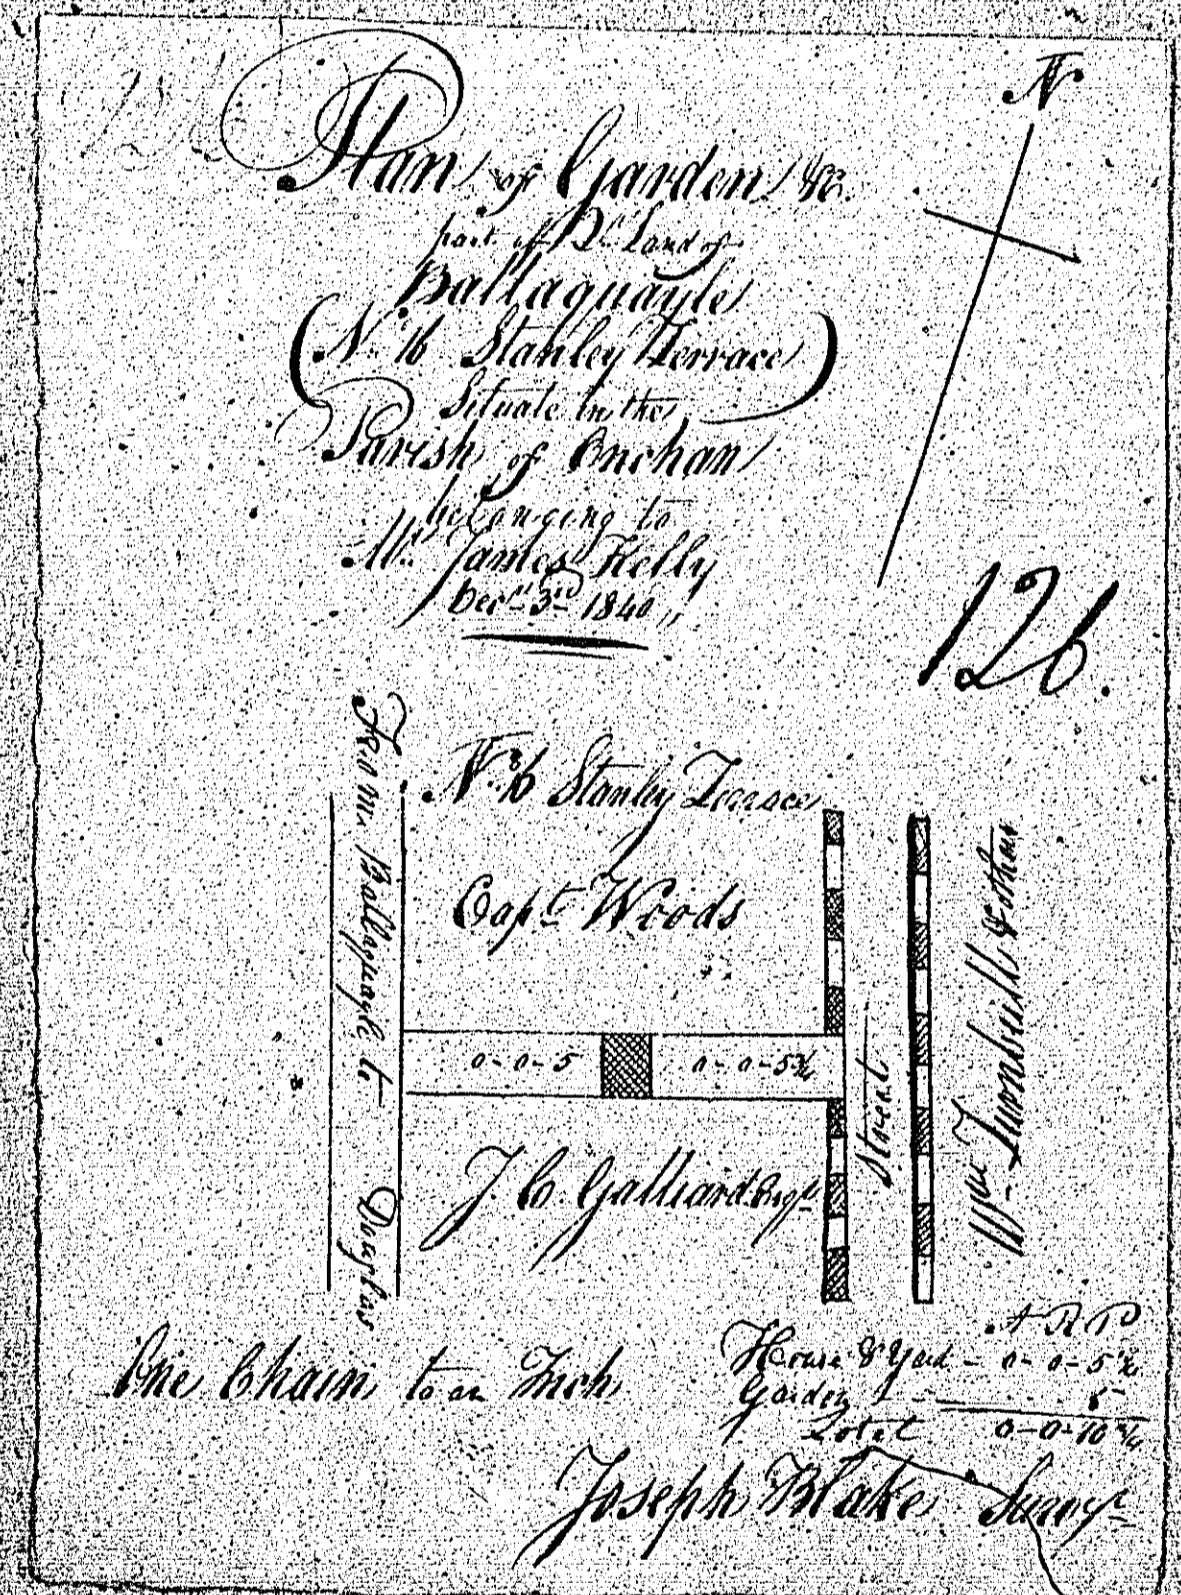 N
Plan of Garden &c.
part of Qr. Land of
Ballaquayle
(No. 16 Stanley Terrace)
Situate in the
Parish of Onchan
belonging to
Mr. James Kelly
Decr. 3rd 1840
126.
From Ballaquayle to Douglas
No. 16 Stanley Terrace
Capt. Woods
0-0-5
0-0-5¾
Street
Wm. & others
J. C. Galliard Esqr.
One Chain to an Inch
A R P
House & Yard - 0-0-5¾
Garden - 5
Total 0-0-10¾
Joseph Blake Survyr.